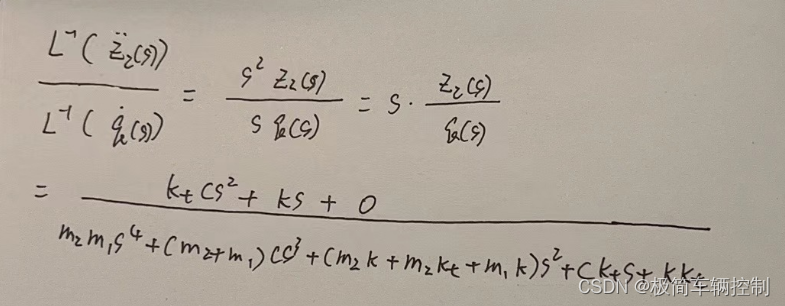 L⁻¹(z̈₂(s)) / L⁻¹(q̇(s)) = s² z₂(s) / s q(s) = s · z₂(s) / q(s)
= kₜcs² + ks + 0 / m₂m₁s⁴+(m₂+m₁)cs³+(m₂k+m₂kₜ+m₁k)s²+ckₜs+kkₜ
CSDN @极简车辆控制